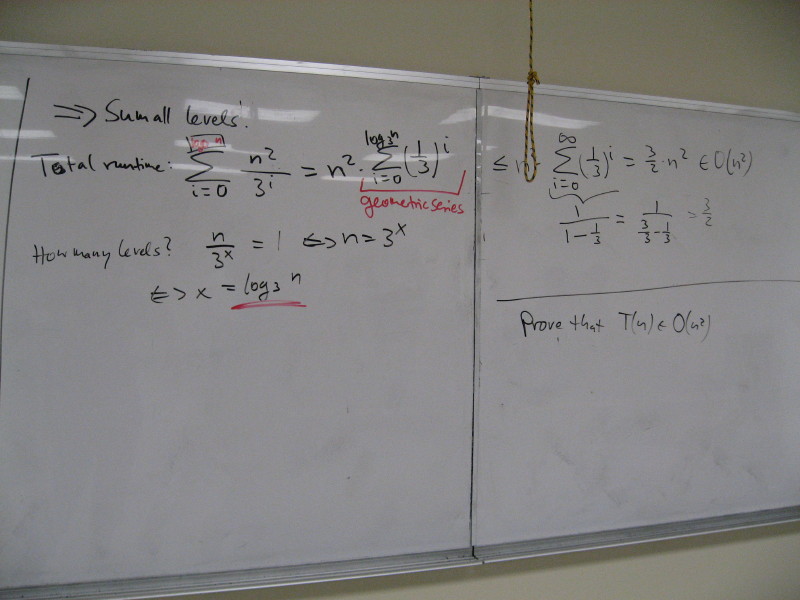 => Sum all levels!
Total runtime: ∑_{i=0}^{log₃ n} n²/3^i = n² · ∑_{i=0}^{log₃ n} (1/3)^i
geometric series
How many levels? n/3^x = 1 <=> n = 3^x
<=> x = log₃ n
≤ n² · ∑_{i=0}^{∞} (1/3)^i = 3/2 · n² ∈ O(n²)
1/(1 - 1/3) = 1/(3/3 - 1/3) = 3/2
Prove that T(n) ∈ O(n²)